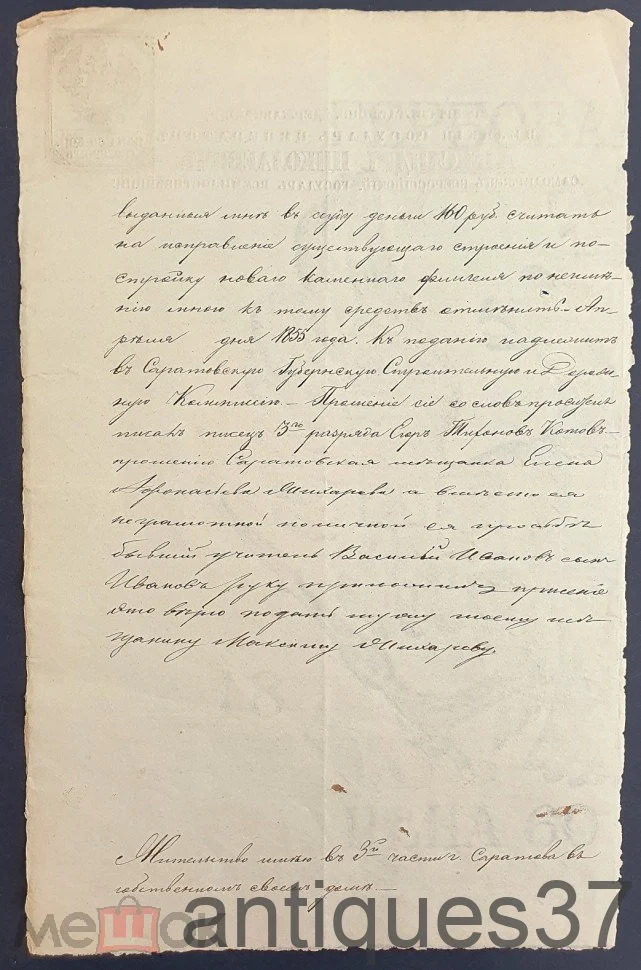 выданныя мнѣ въ ссуду деньги 160 руб. считать
на исправленіе существующаго строенія и по-
стройку новаго каменнаго флигеля по неимѣ-
нію мною къ тому средствъ отмѣнить. Ап-
рѣля дня 1855 года. Къ поданію надлежитъ
въ Саратовскую Губернскую Строительную и Дорож-
ную Коммисію. – Прошеніе сіе со словъ просителя
писалъ писецъ 3го разряда Тихоновъ Котовъ
прошенію Саратовская мѣщанка Елена
Афонасьева Жихарева а вмѣсто ея
неграмотной по личной ея прозьбѣ
бывшій учитель Василій Ивановъ сынъ
Ивановъ руку приложилъ прошеніе
это вѣрю подать мужу моему мѣ-
щанину Максиму Жихареву.
Жительство имѣю въ 3й части г. Саратова въ
собственномъ своемъ домѣ. –
мешок antiques37